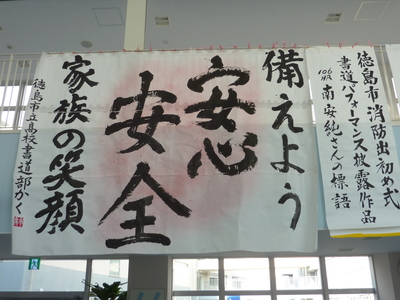 備えよう
安心
安全
家族の笑顔
徳島市立高校書道部かく
徳島市消防出初め式
書道パフォーマンス披露作品
106HR 南安純さんの標語